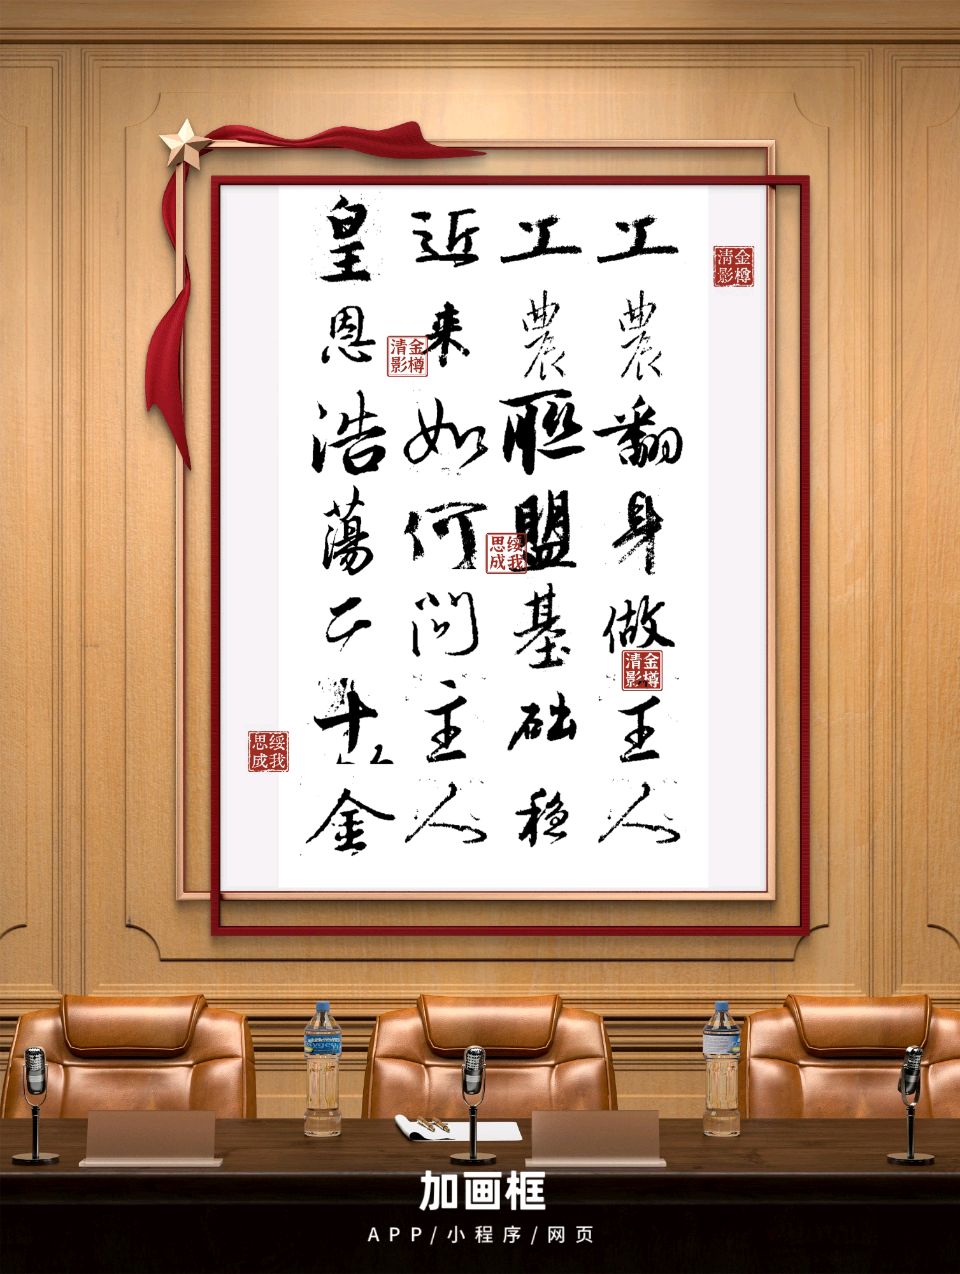 工農翻身做主人
工農聯盟基础稳
近来如何問主人
皇恩浩蕩二十金
金樽清影
金樽清影
绥我思成
金樽清影
绥我思成
加画框
APP/小程序/网页